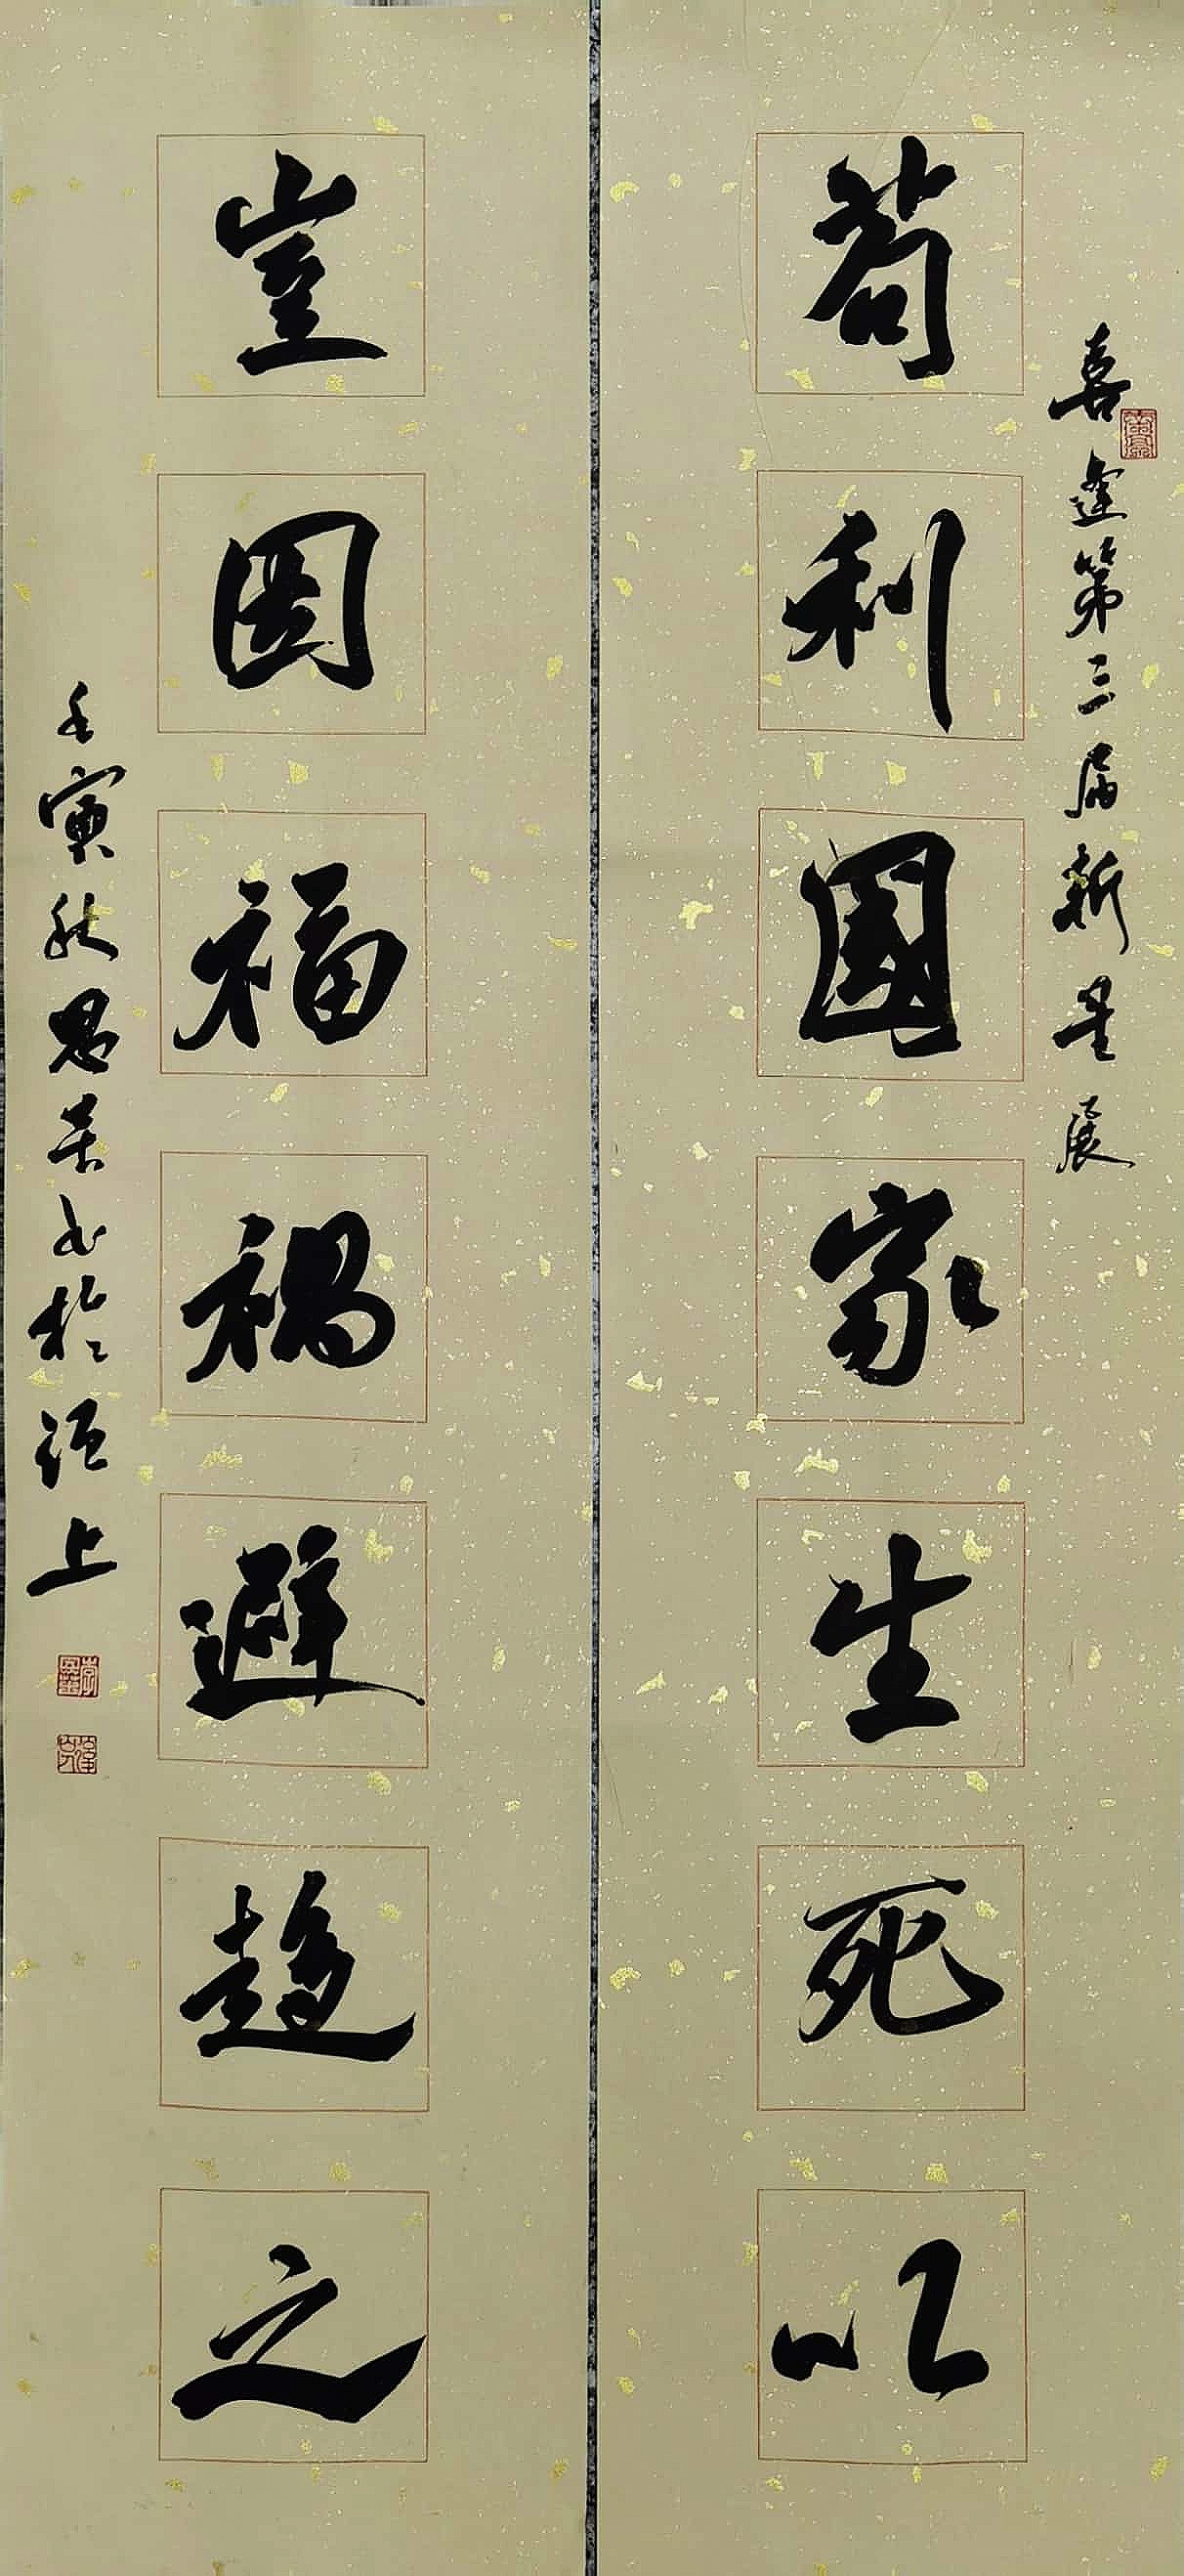 喜逢第三届新星展
苟利國家生死以
豈因福禍避趨之
壬寅秋思美书於
上